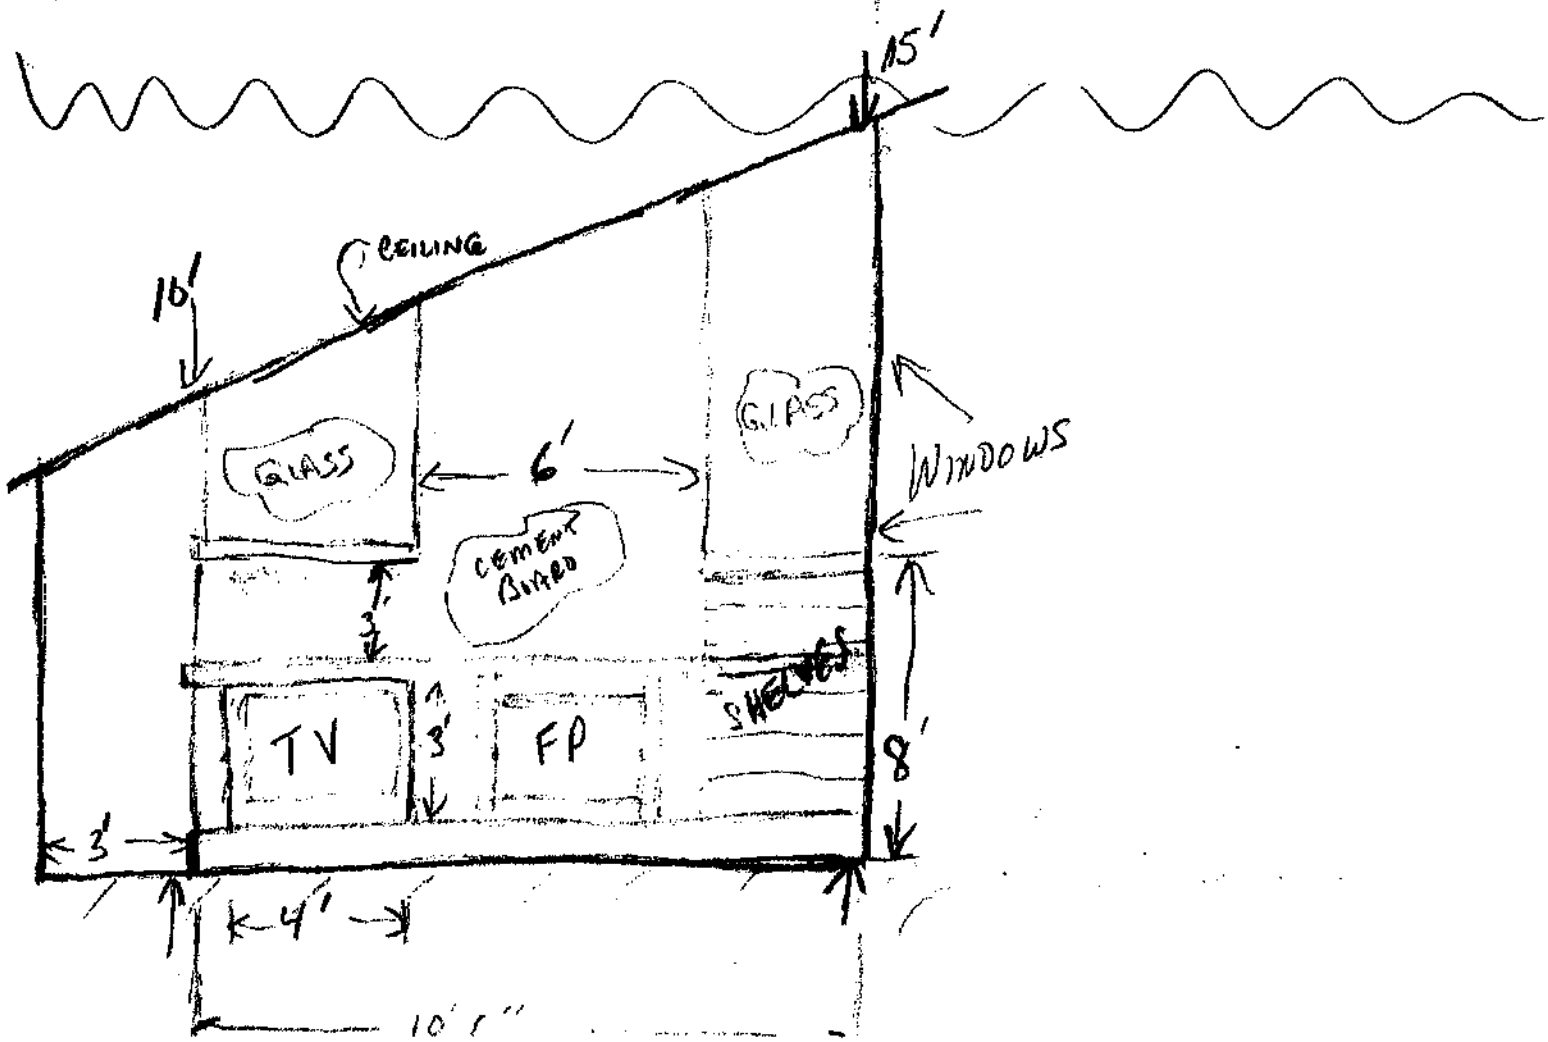 15'
CEILING
10'
GLASS
GLASS
6'
WINDOWS
CEMENT
BOARD
3'
SHELVES
TV
3'
FP
8'
3'
4'